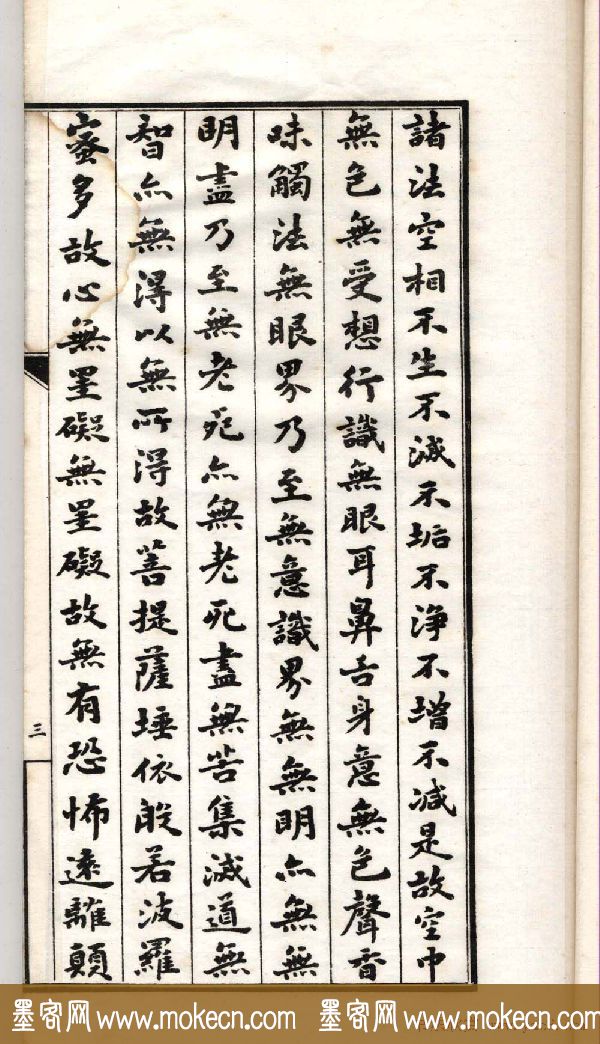 諸法空相不生不滅不垢不淨不增不減是故空中
無色無受想行識無眼耳鼻舌身意無色聲香
味觸法無眼界乃至無意識界無無明亦無無
明盡乃至無老死亦無老死盡無苦集滅道無
智亦無得以無所得故菩提薩埵依般若波羅
蜜多故心無罣礙無罣礙故無有恐怖遠離顛
三
墨客网 www.mokecn.com 墨客网 www.mokecn.com